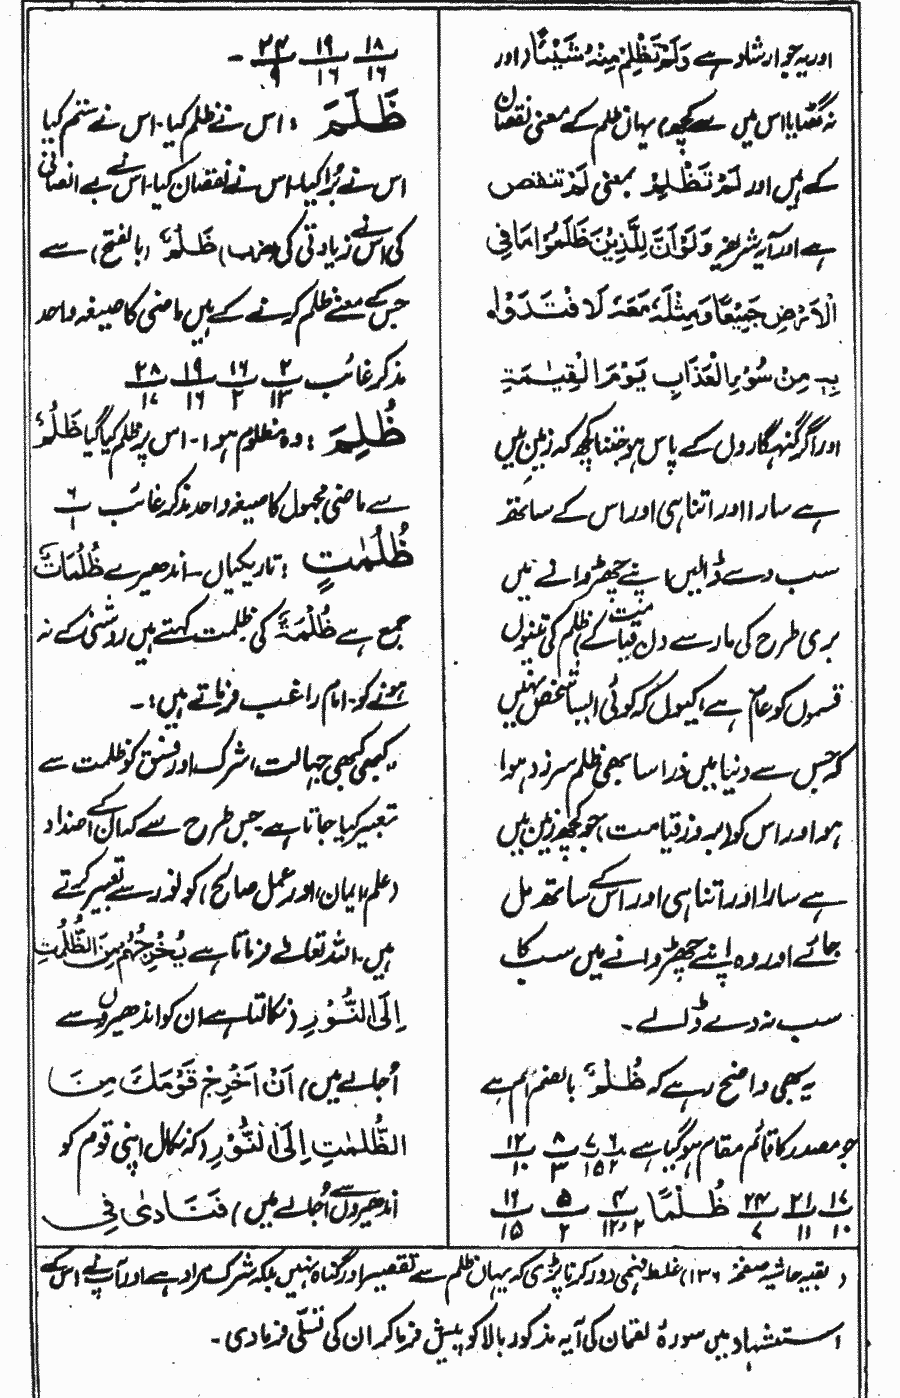 اور یہ جو ارشاد ہے وَلَمْ تَظْلِمْ مِنْهُ شَيْئًا (اور
نہ گھٹایا اس میں سے کچھ) یہاں ظلم کے معنی نقصان
کے ہیں اور لَمْ تَظْلِمْ بمعنی لَمْ تنقص
ہے اور آیہ شریفہ وَلَوْ اَنَّ لِلَّذِيْنَ ظَلَمُوْا مَا فِی
الْاَرْضِ جَمِيْعًا وَمِثْلَهٗ مَعَهٗ لَا فْتَدَوْا
بِهٖ مِنْ سُوْءِ الْعَذَابِ يَوْمَ الْقِيٰمَةِ
اور اگر گنہگاروں کے پاس ہو جتنا کچھ کہ زمین میں
ہے سارا اور اتنا ہی اور اس کے ساتھ
سب دے ڈالیں اپنے چھڑوانے میں
بری طرح کی مار سے دن قیامت کے) ظلم کی تینوں
قسموں کو عام ہے؛ کیوں کہ کوئی ایسا شخص نہیں
کہ جس سے دنیا میں ذرا سا بھی ظلم سرزد ہوا
ہو اور اس کو (بروز قیامت) جو کچھ زمین میں
ہے سارا اور اتنا ہی اور اس کے ساتھ مل
جائے اور وہ اپنے چھڑوانے میں سب کا
سب نہ دے ڈالے ۔
یہ بھی واضح رہے کہ ظُلْمٌ بالضم اسم ہے
جو مصدر کا قائم مقام ہو گیا ہے ۶/۲ ۷/۱۵ ۸/۳ ۱۲/۱۰
۱۷/۱۰ ۲۱/۱۱ ۲۴/۷ ظُلْمًا ۴/۱۲،۲ ۵/۲ ۱۶/۱۵
۱۸/۱۶ ۱۹/۱۶ ۲۴/۹ ۔
ظَلَمَ : اس نے ظلم کیا۔ اس نے ستم کیا
اس نے برُا کیا۔ اس نے نقصان کیا۔ اس نے بے انصافی
کی اس نے زیادتی کی (ضرب) ظَلْمٌ (بالفتح) سے
جس کے معنے ظلم کرنے کے ہیں ماضی کا صیغہ واحد
مذکر غائب ۲/۱۳ ۱۶/۲ ۱۹/۱۶ ۲۸/۱۷
ظُلِمَ : وہ مظلوم ہوا۔ اس پر ظلم کیا گیا ظُلْمٌ
سے ماضی مجہول کا صیغہ واحد مذکر غائب ۶/۱
ظُلُمٰتٍ : تاریکیاں۔ اندھیرے ظُلُمَاتٌ
جمع ہے ظُلْمَةٌ کی ظلمت کہتے ہیں روشنی کے نہ
ہونے کو۔ امام راغب فرماتے ہیں:۔
"کبھی کبھی جہالت، شرک اور فسق کو ظلمت سے
تعبیر کیا جاتا ہے جس طرح سے کہ ان کے اضداد
(علم، ایمان، اور عمل صالح) کو نور سے تعبیر کرتے
ہیں۔ اللہ تعالٰے فرماتا ہے يُخْرِجُهُمْ مِنَ الظُّلُمٰتِ
اِلَى النُّوْرِ (نکالتا ہے ان کو اندھیروں سے
اُجالے میں) اَنْ اَخْرِجْ قَوْمَكَ مِنَ
الظُّلُمٰتِ اِلَى النُّوْرِ (کہ نکال اپنی قوم کو
اندھیروں سے اُجالے میں) فَنَادٰى فِی
(بقیہ حاشیہ صفحہ ۱۳۶) غلط فہمی دور کرنا پڑی کہ یہاں ظلم سے تقصیر اور گناہ نہیں بلکہ شرک مراد ہے اور آپ نے اس کے
استشہاد میں سورہٗ لقمان کی آیہ مذکور بالا کو پیش فرما کر ان کی تسلّی فرمادی ۔